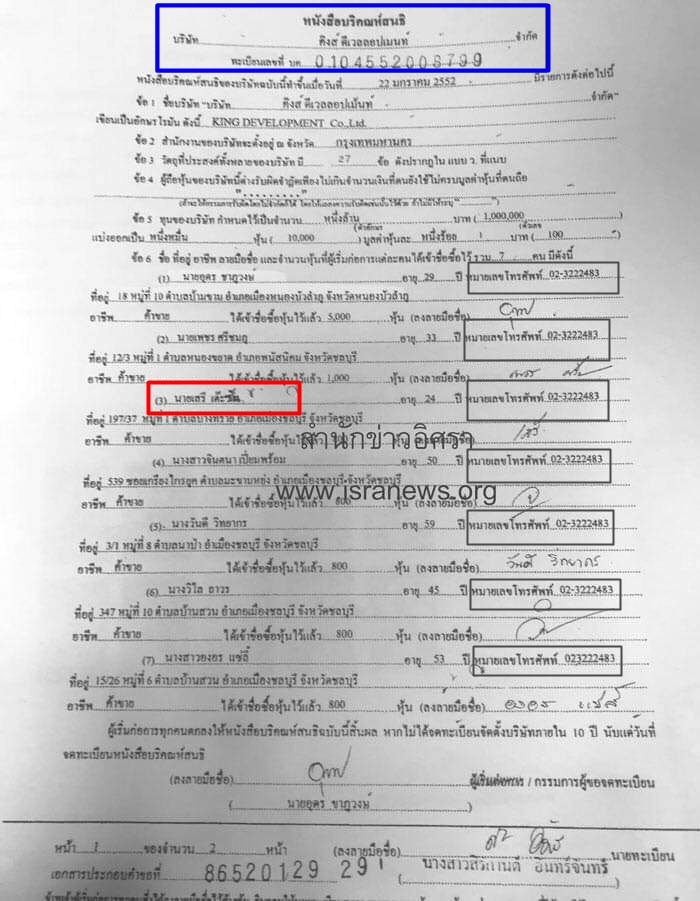 หนังสือบริคณห์สนธิ
บริษัท คิงส์ ดีเวลลอปเมนท์ จำกัด
ทะเบียนเลขที่ บค. 0104552008799
หนังสือบริคณห์สนธิของบริษัทฉบับนี้ทำขึ้นเมื่อวันที่ 22 มกราคม 2552 มีรายการดังต่อไปนี้
ข้อ 1 ชื่อบริษัท "บริษัท คิงส์ ดีเวลลอปเม้นท์ จำกัด"
เขียนเป็นอักษรโรมัน ดังนี้ KING DEVELOPMENT Co.,Ltd.
ข้อ 2 สำนักงานของบริษัทจะตั้งอยู่ ณ จังหวัด กรุงเทพมหานคร
ข้อ 3 วัตถุที่ประสงค์ทั้งหลายของบริษัท มี 27 ข้อ ดังปรากฏใน แบบ ว. ที่แนบ
ข้อ 4 ผู้ถือหุ้นของบริษัทนี้ต่างรับผิดจำกัดเพียงไม่เกินจำนวนเงินที่ตนยังใช้ไม่ครบมูลค่าหุ้นที่ตนถือ
ข้อ 5 ทุนของบริษัท กำหนดไว้เป็นจำนวน หนึ่งล้าน บาท ( 1,000,000 )
(ตัวอักษร) (ตัวเลข)
แบ่งออกเป็น หนึ่งหมื่น หุ้น ( 10,000 ) มูลค่าหุ้นละ หนึ่งร้อย บาท ( 100 )
ข้อ 6 ชื่อ ที่อยู่ อาชีพ ลายมือชื่อ และจำนวนหุ้นที่ผู้เริ่มก่อการแต่ละคนได้เข้าชื่อซื้อไว้ รวม 7 คน มีดังนี้
(1) นายอุดร ชาภูวงษ์ อายุ 29 ปี หมายเลขโทรศัพท์ 02-3222483
ที่อยู่ 18 หมู่ที่ 10 ตำบลบ้านขาม อำเภอเมืองหนองบัวลำภู จังหวัดหนองบัวลำภู
อาชีพ ค้าขาย ได้เข้าชื่อซื้อหุ้นไว้แล้ว 5,000 หุ้น (ลงลายมือชื่อ)
(2) นายเพชร ศรีชมภู อายุ 33 ปี หมายเลขโทรศัพท์ 02-3222483
ที่อยู่ 12/3 หมู่ที่ 1 ตำบลหนองขยาด อำเภอพนัสนิคม จังหวัดชลบุรี
อาชีพ ค้าขาย ได้เข้าชื่อซื้อหุ้นไว้แล้ว 1,000 หุ้น (ลงลายมือชื่อ)
(3) นายเสรี อายุ 24 ปี หมายเลขโทรศัพท์ 02-3222483
ที่อยู่ 197/37 หมู่ที่ 1 ตำบลบางทราย อำเภอเมืองชลบุรี จังหวัดชลบุรี
อาชีพ ค้าขาย ได้เข้าชื่อซื้อหุ้นไว้แล้ว หุ้น (ลงลายมือชื่อ) เสรี
สำนักข่าวอิศรา
(4) นางสาวจินตนา เปี่ยมพร้อม อายุ 50 ปี หมายเลขโทรศัพท์ 02-3222483
ที่อยู่ 539 ซอยเกรียงไกรยุค ตำบลมะขามหย่ง อำเภอเมืองชลบุรี จังหวัดชลบุรี
www.isranews.org
อาชีพ ค้าขาย ได้เข้าชื่อซื้อหุ้นไว้แล้ว 800 หุ้น (ลงลายมือชื่อ)
(5) นางวันดี วิทยากร อายุ 59 ปี หมายเลขโทรศัพท์ 02-3222483
ที่อยู่ 3/1 หมู่ที่ 8 ตำบลนาป่า อำเภอเมืองชลบุรี จังหวัดชลบุรี
อาชีพ ค้าขาย ได้เข้าชื่อซื้อหุ้นไว้แล้ว 800 หุ้น (ลงลายมือชื่อ) วันดี วิทยากร
(6) นางวิไล ถาวร อายุ 45 ปี หมายเลขโทรศัพท์ 02-3222483
ที่อยู่ 347 หมู่ที่ 10 ตำบลบ้านสวน อำเภอเมืองชลบุรี จังหวัดชลบุรี
อาชีพ ค้าขาย ได้เข้าชื่อซื้อหุ้นไว้แล้ว 800 หุ้น (ลงลายมือชื่อ)
(7) นางสาวองอร แซ่ลี้ อายุ 53 ปี หมายเลขโทรศัพท์ 023222483
ที่อยู่ 15/26 หมู่ที่ 6 ตำบลบ้านสวน อำเภอเมืองชลบุรี จังหวัดชลบุรี
อาชีพ ค้าขาย ได้เข้าชื่อซื้อหุ้นไว้แล้ว 800 หุ้น (ลงลายมือชื่อ) องอร แซ่ลี้
ผู้เริ่มก่อการทุกคนตกลงให้หนังสือบริคณห์สนธิฉบับนี้สิ้นผล หากไม่ได้จดทะเบียนจัดตั้งบริษัทภายใน 10 ปี นับแต่วันที่
จดทะเบียนหนังสือบริคณห์สนธิ
(ลงลายมือชื่อ) ผู้เริ่มก่อการ / กรรมการผู้ขอจดทะเบียน
( นายอุดร ชาภูวงษ์ )
หน้า 1 ของจำนวน 2 หน้า (ลงลายมือชื่อ) นายทะเบียน
เอกสารประกอบคำขอที่ 86520129 291 ( นางสาวสิริกานดี อินทร์จันทร์ )